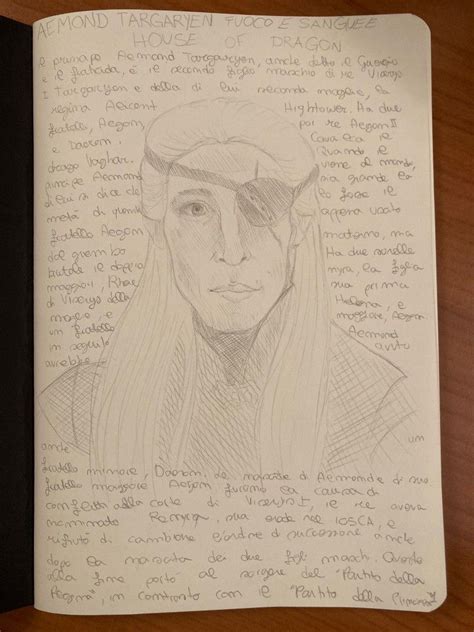 AEMOND TARGARYEN FUOCO E SANGUE E
HOUSE OF DRAGON
Il principe Aemond Targaryen, anche detto il Guercio
e il fratricida, è il secondo figlio maschio di re Viserys
I Targaryen e della di lui seconda moglie, la
regina Alicent Hightower. Ha due
fratelli, Aegon, poi re Aegon II
e Daeron. Cavalca il
drago Vaghar. Quando il
principe Aemond viene al mondo,
di lui si dice che sia grande la
metà di quanto lo fosse il
fratello Aegon appena uscito
dal grembo materno, ma
brutale il doppio. Ha due sorelle
maggiori, Rhae nyra, la figlia
di Viserys della sua prima
moglie, e Helaena, e
un fratello maggiore, Aegon.
In seguito Aemond
avrebbe avuto
anche un
fratello minore, Daeron. Le nascite di Aemond e di suo
fratello maggiore Aegon furono la causa di
conflitti alla corte di Viserys I, il re aveva
nominato Rhaenyra sua erede nel 105CA, e
rifiutò di cambiare l'ordine di successione anche
dopo la nascita dei due figli maschi. Questo
alla fine portò al sorgere del "Partito della
Regina", in contrasto con il "Partito della Principessa"